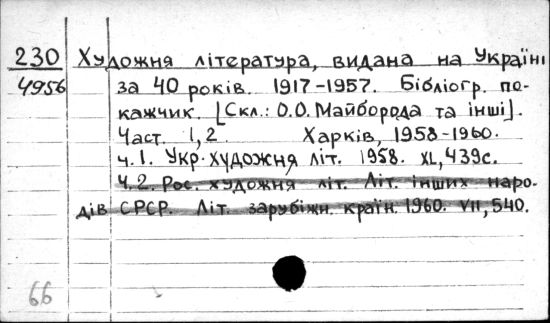 230 Художня література, видана на Україні
4956 за 40 років. 1917-1957. Бібліогр. по-
кажчик. [Скл.: О.О. Майборода та інші].
Част. 1, 2. Харків, 1958-1960.
ч. 1. Укр. художня літ. 1958. XL, 439с.
Ч. 2. Рос. художня літ. Літ. інших наро-
дів СРСР. Літ. зарубіжн. країн. 1960. VII, 540.
66